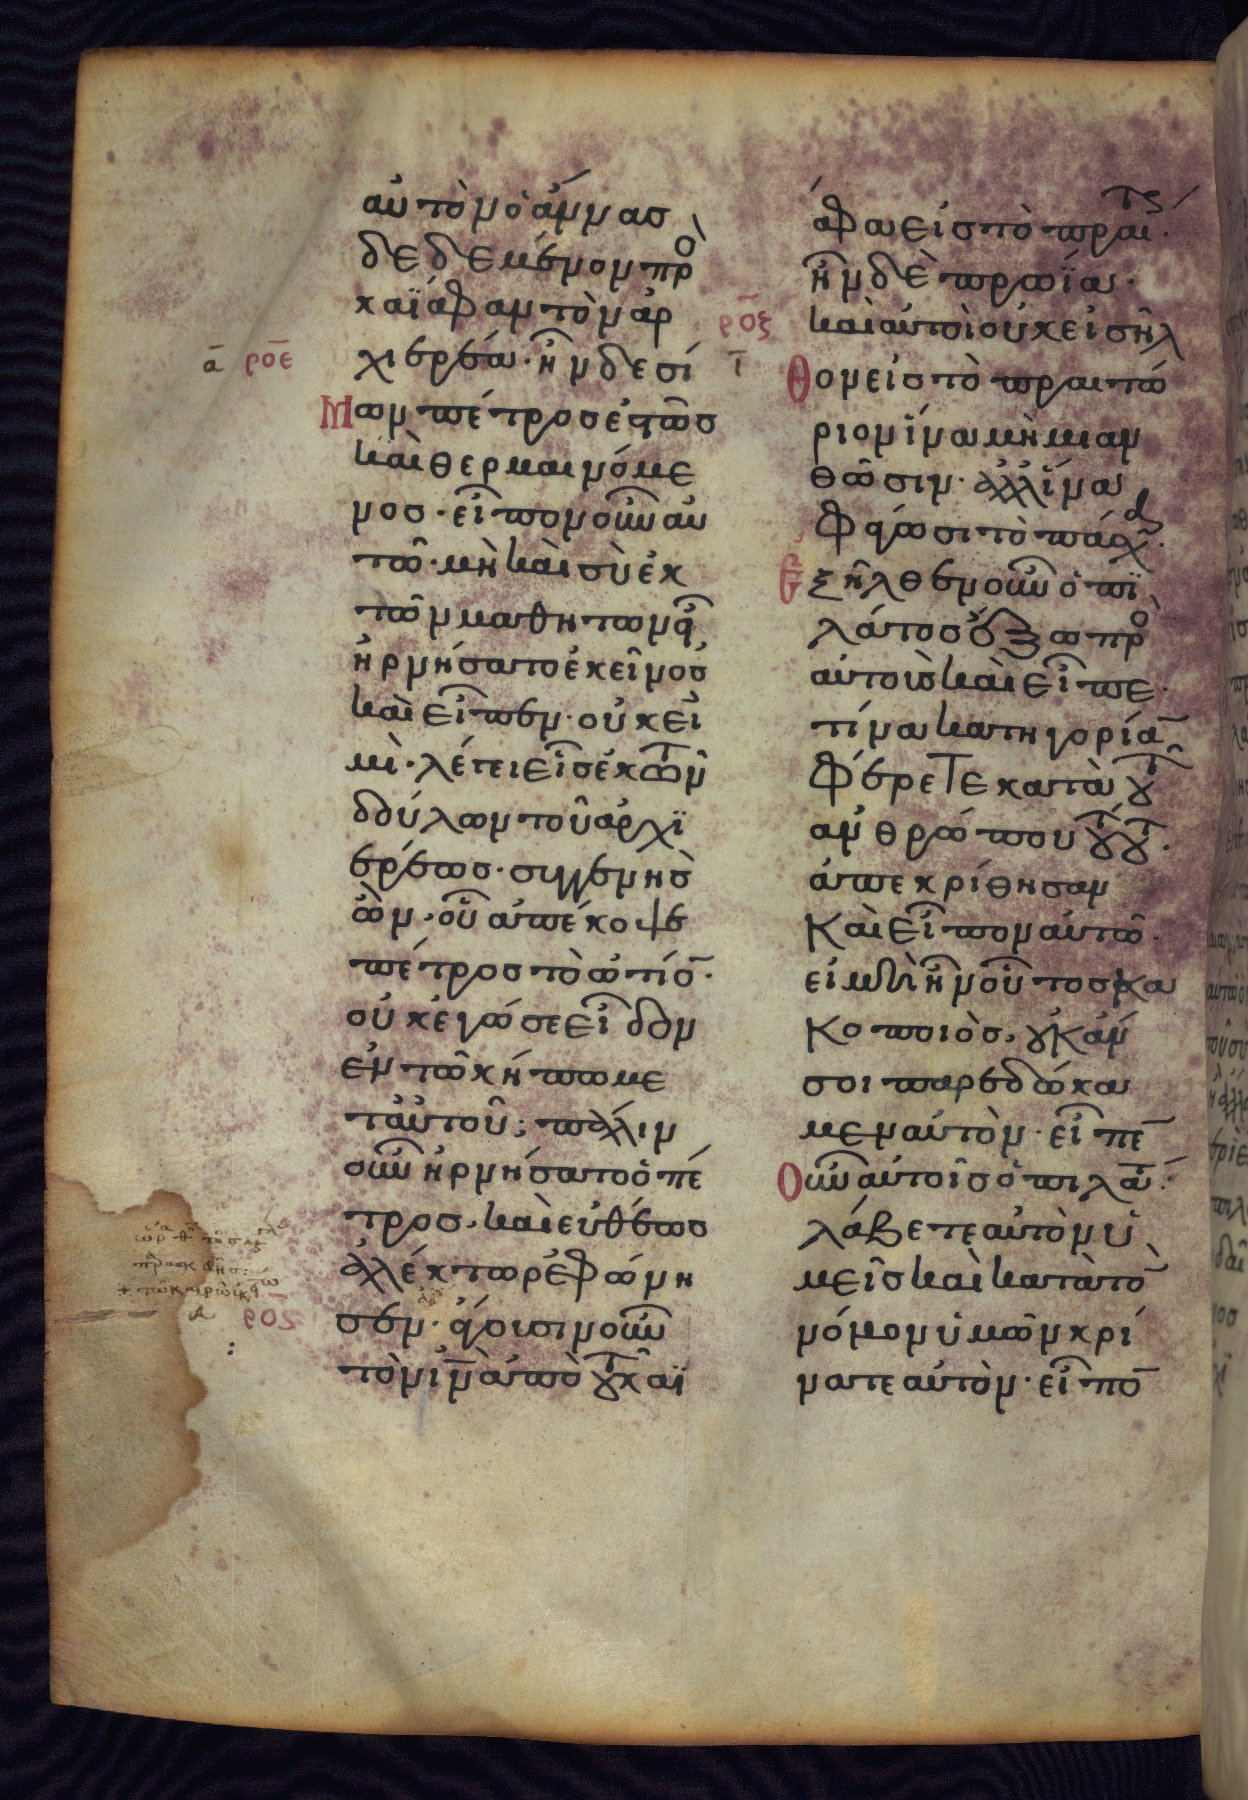 αὐτὸν ὁ ἄννας
δεδεμένον πρὸ
καϊάφαν τὸν ἀρ
χιερέα· ἦν δε σί
ᾱ ρο̄ε
Μων πέτρος ἑστὼς
καὶ θερμαινόμε
νος· εἶπον οὖν αὐ
τῶ· μὴ καὶ σὺ ἐκ
τῶν μαθητων εἶ
ἠρνήσατο ἐκεῖνος
καὶ εἶπεν· οὐκ εἰ
μὶ· λέγει εἷς ἐκ τῶν
δούλων τοῦ ἀρχϊ
ερέως· συγγενὴς
ὢν, οὗ ἀπέκοψε
πέτρος τὸ ὠτίο̄·
οὐκ ἐγώ σε εἶδον
ἐν τῶ κήπω με
τ' αὐτοῦ; πάλιν
οὖν ἠρνήσατο ὁ πέ
τρος, καὶ εὐθέως
ἀλέκτωρ ἐφώνη
σεν· ἄγουσιν οὖν
τὸν ι̅ν̅ ἀπὸ τοῦ καϊ
ρο̄ς
ῑ
άφα εἰς τὸ πραιτ·
ἦν δὲ πρωΐα·
καὶ αὐτοὶ οὐκ εἰσῆλ
Θον εἰς τὸ πραιτώ
ριον ἵνα μὴ μιαν
θῶσιν· ἀλλ' ἵνα
φάγωσι τὸ πάσχα·
Ἐξῆλθεν οὖν ὁ πϊ
λάτος ἔξω πρὸ
αὐτοὺς καὶ εἶπε·
τίνα κατηγορίᾱ
φέρετε κατὰ τοῦ
ἀνθρώπου τούτου·
ἀπεκρίθησαν
Καὶ εἶπον αὐτῶ·
εἰ μὴ ἦν οὗτος κα
κοποιὸς, οὐκ ἄν
σοι παρεδώκα
μεν αὐτὸν· εἶπε̄
Οὖν αὐτοῖς ὁ πιλάτ·
λάβετε αὐτὸν ὑ
μεῖς καὶ κατὰ τὸ
νόμον ὑμῶν κρί
νατε αὐτὸν· εἶπο̄